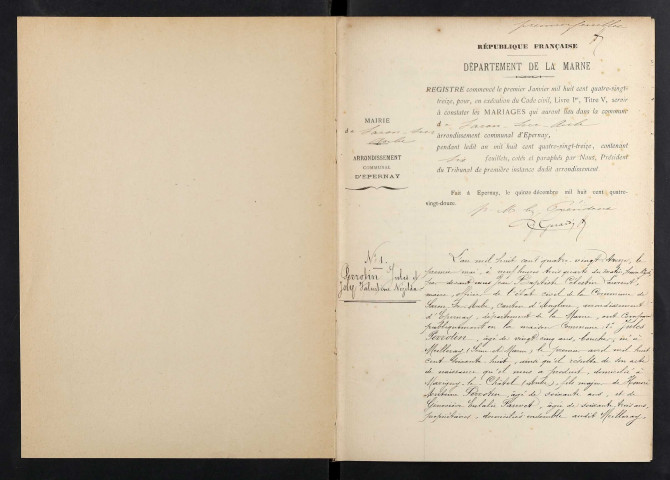 premier feuillet
RÉPUBLIQUE FRANÇAISE
DÉPARTEMENT DE LA MARNE
REGISTRE commencé le premier Janvier mil huit cent quatre-vingt-
treize, pour, en exécution du Code civil, Livre Ier, Titre V, servir
à constater les MARIAGES qui auront lieu dans la commune
d
arrondissement communal d'Epernay,
pendant ledit an mil huit cent quatre-vingt-treize, contenant
six feuillets, cotés et paraphés par Nous, Président
du Tribunal de première instance dudit arrondissement.
Fait à Epernay, le quinze décembre mil huit cent quatre-
vingt-douze.
MAIRIE
de Saron-sur-
Aube
ARRONDISSEMENT
COMMUNAL
D'EPERNAY
N° 1.
Perrotin Jules et
Joly
L'an mil huit cent quatre vingt treize, le
premier mai, à neuf heures trois quarts du matin,
par devant nous Baptiste Célestin Laurent,
maire, officier de l'état civil de la Commune de
Saron-sur-Aube, canton d'Anglure, arrondissement
d'Epernay, département de la Marne, ont comparu
publiquement en la maison Commune: 1° Jules
Perrotin, âgé de vingt cinq ans, né à
(Seine et Marne), le premier avril mil huit
cent soixante huit, ainsi qu'il résulte de son acte
de naissance qu'il nous a produit, domicilié à
Marigny-le-Châtel (Aube), fils majeur de
Perrotin, âgé de soixante ans, et de
Eulalie, âgée de soixante trois ans,
propriétaires, domiciliés ensemble audit